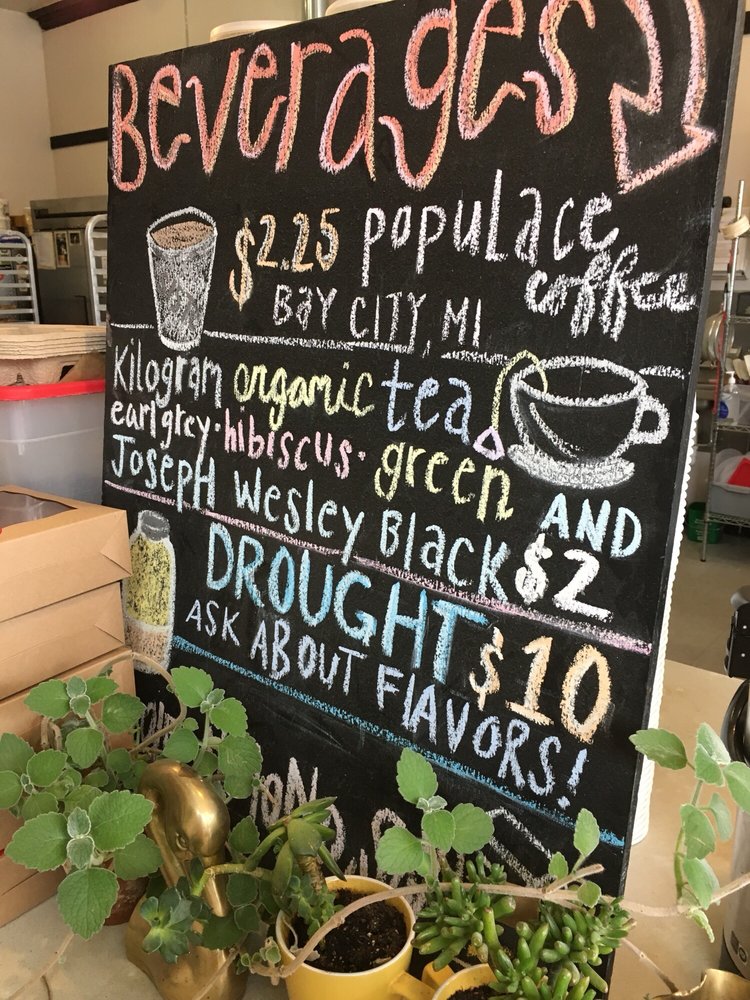 Beverages
$2.25 populace
coffee
BAY CITY, MI
Kilogram organic tea
earl grey · hibiscus · green AND
Joseph Wesley Black $2
DROUGHT $10
ASK ABOUT FLAVORS!